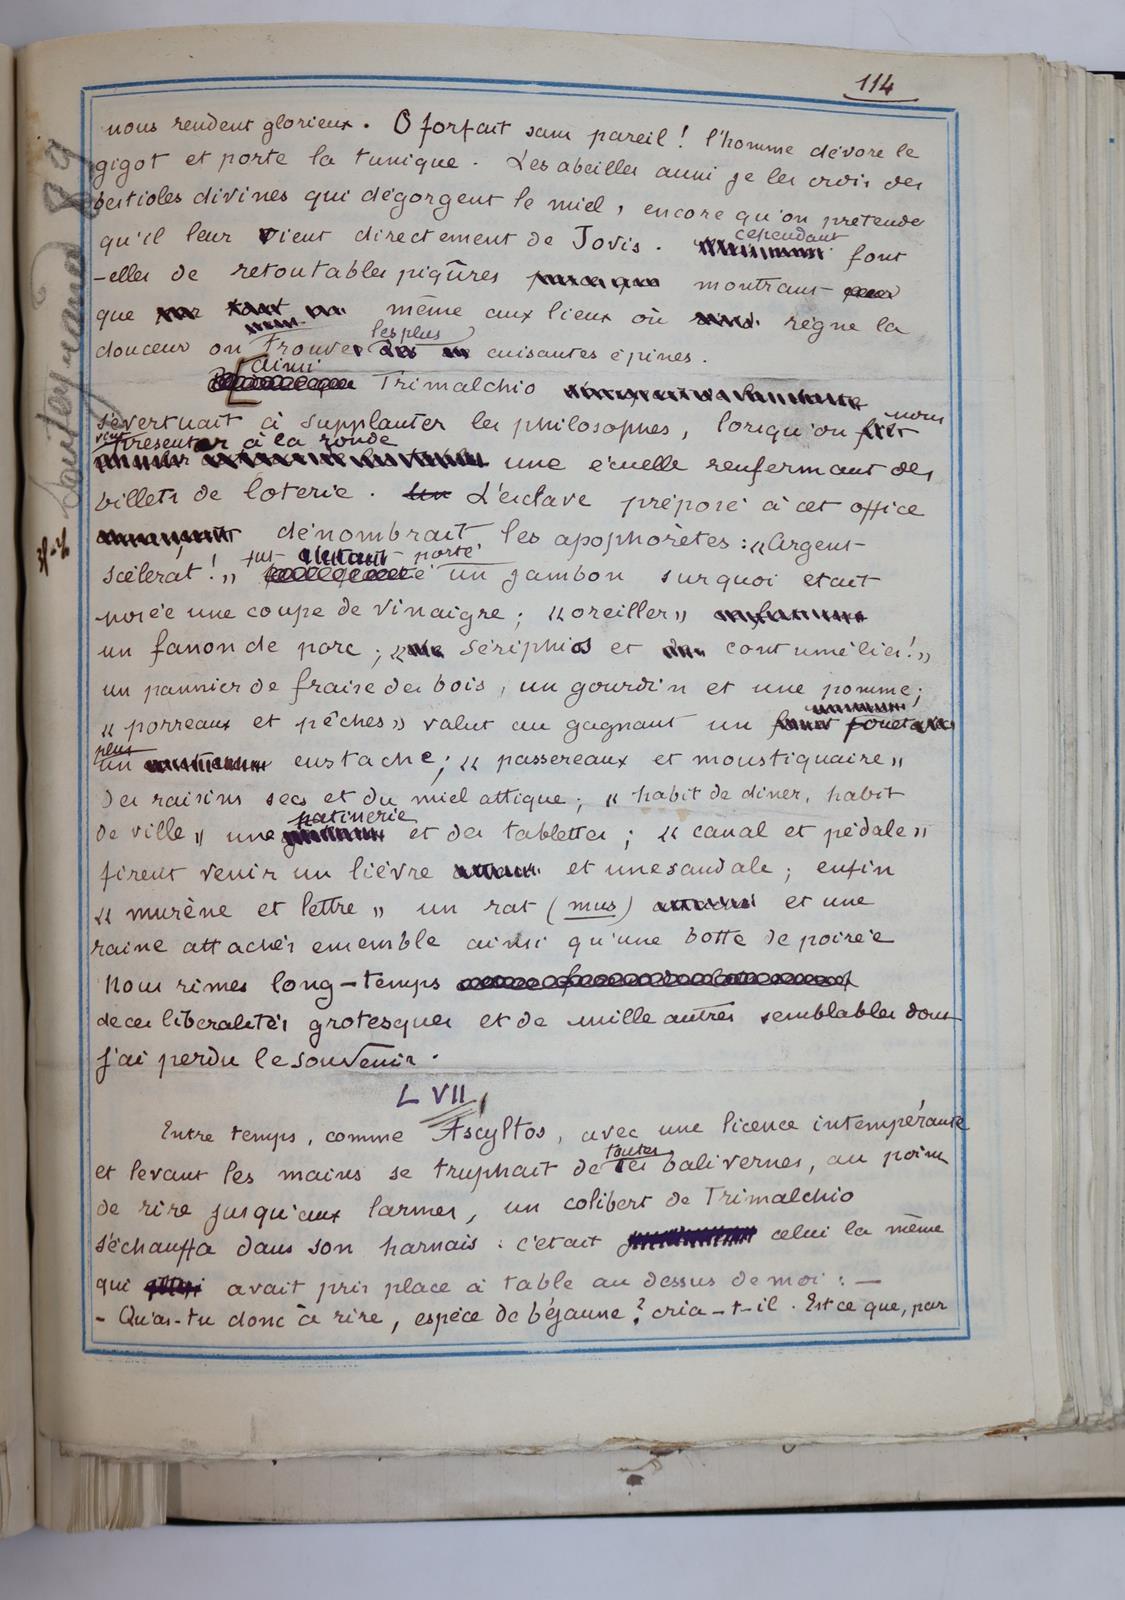 114
nous rendent glorieux. O forfait sans pareil! l'homme dévore le
gigot et porte la tunique. Les abeilles aussi je les crois des
bestioles divines qui dégorgent le miel, encore qu'on prétende
qu'il leur vient directement de Jovis. cependant font
-elles de retoutables piqûres montrant
que même aux lieux où règne la
douceur on trouve les plus cuisantes épines.
ainsi Trimalchio
s'évertuait à supplanter les philosophes, lorsqu'on nous
vint présenter à la ronde une écuelle renfermant des
billets de loterie. L'esclave préposé à cet office
dénombrait les apophorètes: «Argent
scélérat!» fut porté un jambon surquoi était
posée une coupe de vinaigre; «oreiller»
un fanon de porc; « sériphios et contumélies!»
un pannier de fraise des bois, un gourdin et une pomme;
« porreaux et pêches» valut au gagnant un fouet
plus un eustache; « passereaux et moustiquaire»
des raisins secs et du miel attique; « habit de diner, habit
de ville» une patinerie et des tablettes; « canal et pédale»
firent venir un lièvre et une sandale; enfin
« murène et lettre» un rat (mus) et une
raine attachés ensemble ainsi qu'une botte de poirée
Nous rîmes long-temps
de ces libéralités grotesques et de mille autres semblables dont
j'ai perdu le souvenir.
LVII
Entre temps, comme Ascyltos, avec une licence intempérante
et levant les mains se truphait de toutes ces balivernes, au point
de rire jusqu'aux larmes, un colibert de Trimalchio
s'échauffa dans son harnais: c'était celui la même
qui avait pris place à table au dessus de moi: —
- Qu'as-tu donc à rire, espèce de béjaune? cria-t-il. Est ce que, par